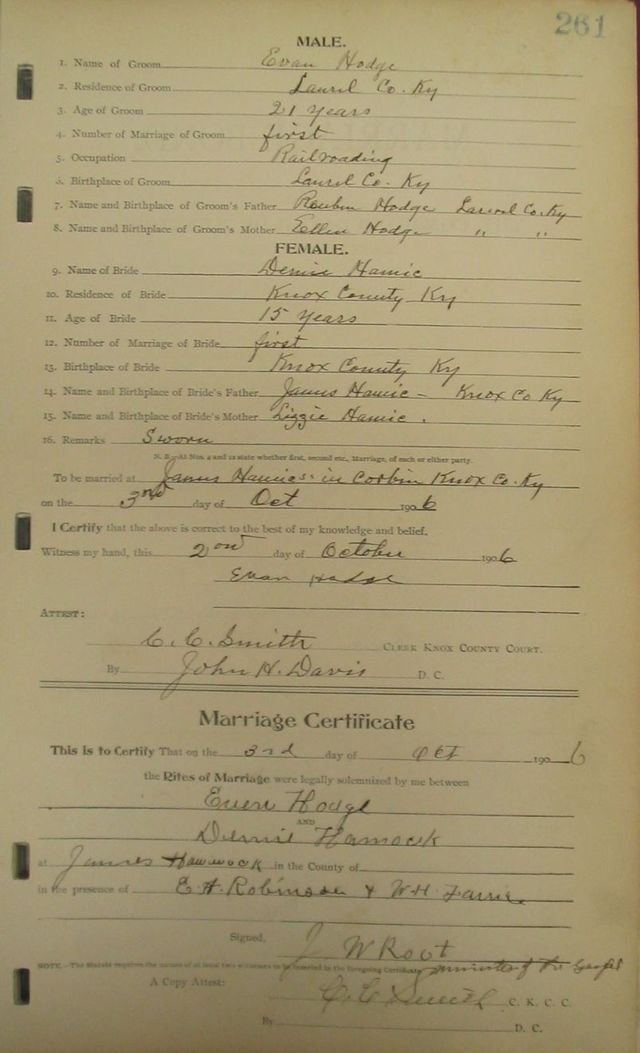 261
MALE.
1. Name of Groom Evan Hodge
2. Residence of Groom Laurel Co. Ky
3. Age of Groom 21 years
4. Number of Marriage of Groom first
5. Occupation Railroading
6. Birthplace of Groom Laurel Co. Ky
7. Name and Birthplace of Groom's Father Reubin Hodge Laurel Co. Ky
8. Name and Birthplace of Groom's Mother Ellen Hodge " "
FEMALE.
9. Name of Bride Dennie Hamic
10. Residence of Bride Knox County Ky
11. Age of Bride 15 years
12. Number of Marriage of Bride first
13. Birthplace of Bride Knox County Ky
14. Name and Birthplace of Bride's Father James Hamic - Knox Co Ky
15. Name and Birthplace of Bride's Mother Lizzie Hamic.
16. Remarks Sworn
N. B.—At Nos. 4 and 12 state whether first, second etc., Marriage, of each or either party.
To be married at James Hamics in Corbin Knox Co. Ky
on the 3nd day of Oct 1906
I Certify that the above is correct to the best of my knowledge and belief.
Witness my hand, this 2ond day of October 1906
Evan Hodge
ATTEST:
C. C. Smith CLERK KNOX COUNTY COURT.
By John H. Davis D. C.
Marriage Certificate
This is to Certify That on the 3rd day of Oct 1906
the Rites of Marriage were legally solemnized by me between
Evan Hodge
AND
Dennie Hamock
at James Hammock in the County of
in the presence of E. A. Robinson & W. H. Farris
Signed, J W Root
NOTE.—The Statute requires the names of at least two witnesses to be inserted in the foregoing Certificate. minister of the Gospel
A Copy Attest: C. C. Smith C. K. C. C.
By D. C.